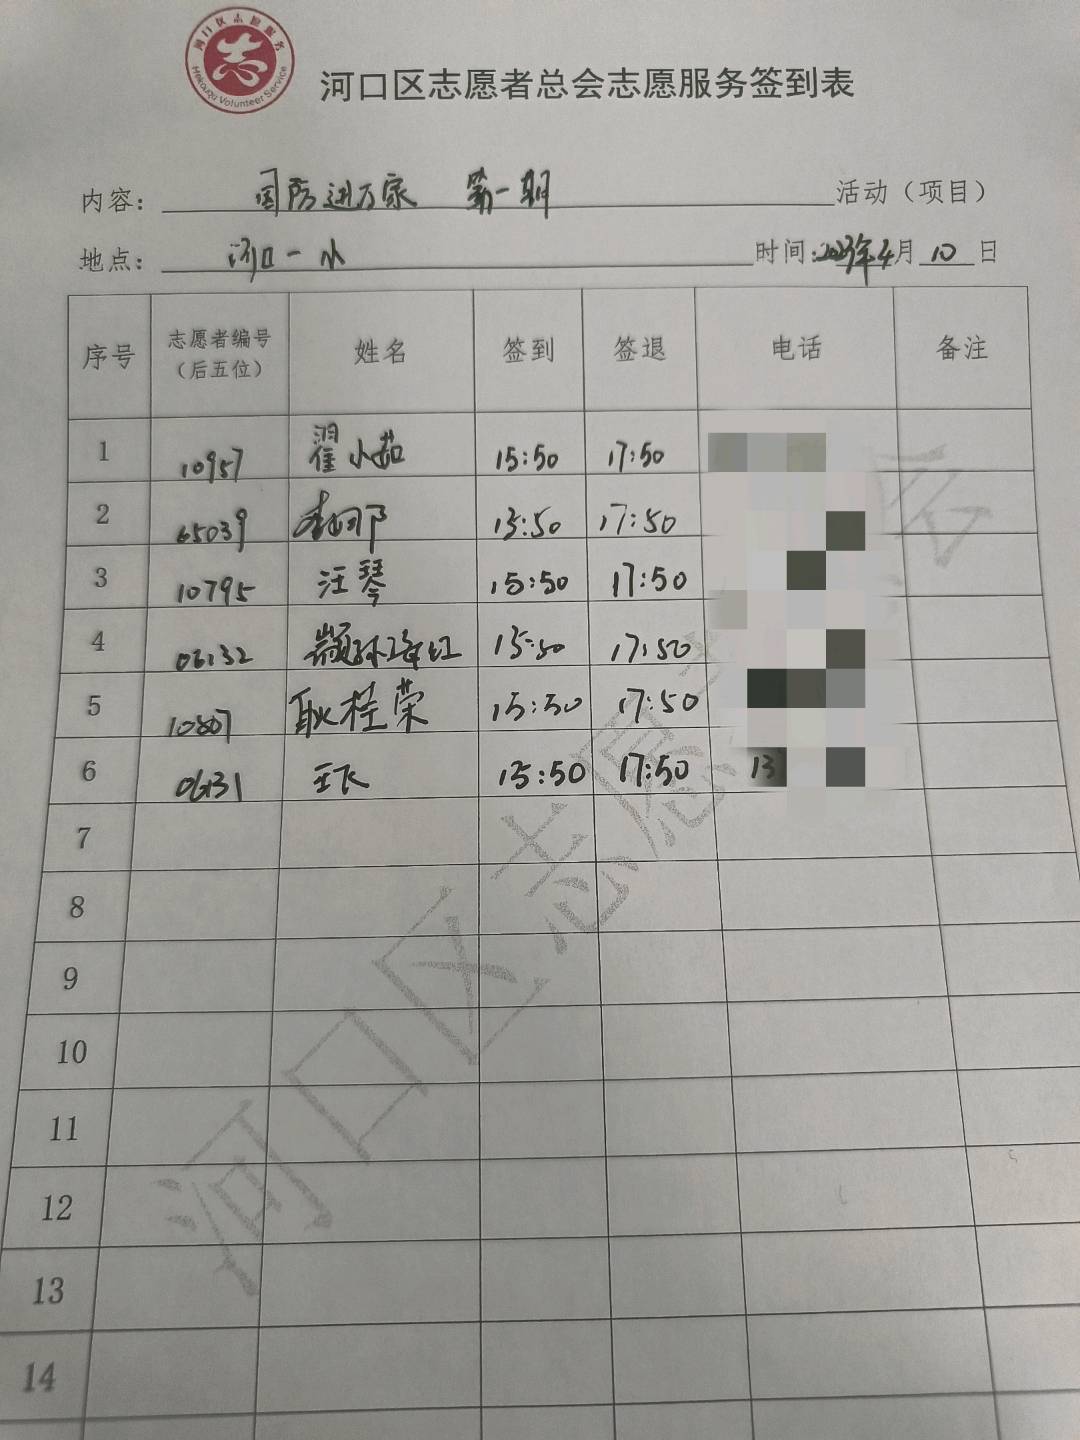 河口区志愿服务
志
Hekouqu Volunteer Service
河口区志愿者总会志愿服务签到表
内容： 国防进万家 第一期 活动（项目）
地点： 河口一小 时间：2023年4月10日
序号 志愿者编号（后五位） 姓名 签到 签退 电话 备注
1 10957 翟小茹 15:50 17:50
2 65039 15:50 17:50
3 10795 汪琴 15:50 17:50
4 06132 颛孙海红 15:50 17:50
5 10807 耿桂荣 15:50 17:50
6 06131 王飞 15:50 17:50 13
7
8
9
10
11
12
13
14
河口区志愿